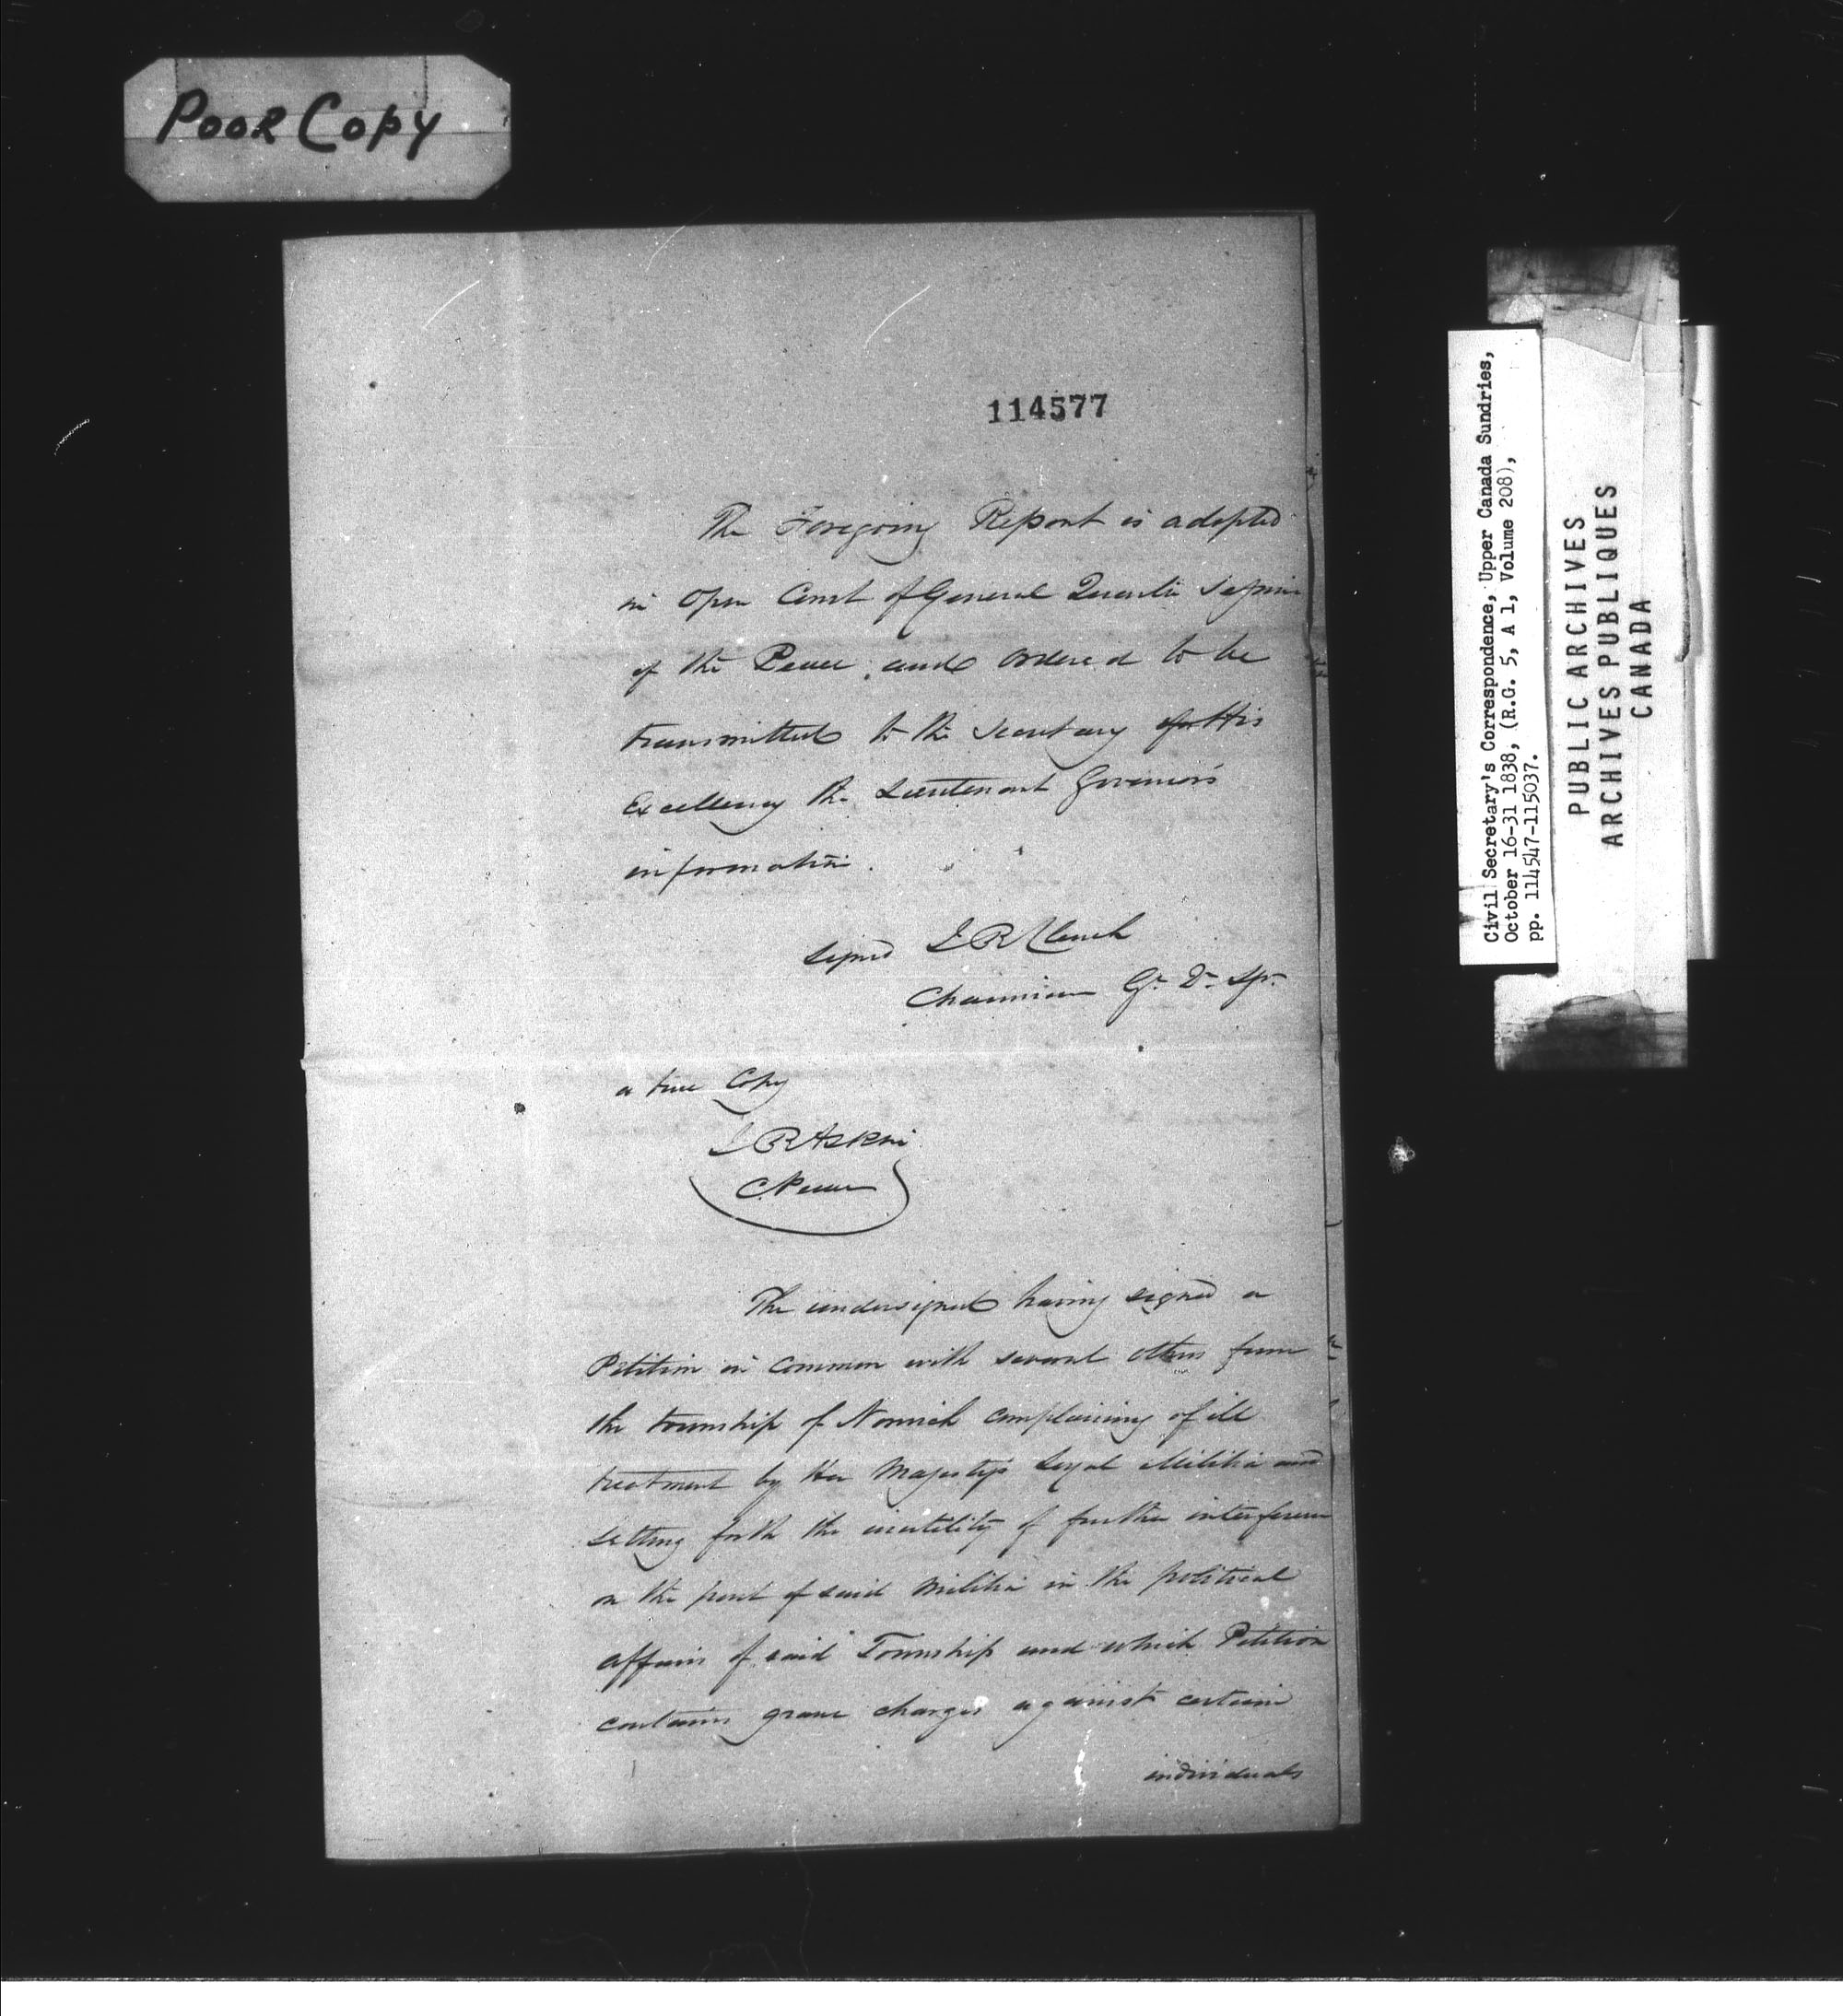 POOR COPY
114577
The Foregoing Report is adopted
in Open Court of General Quarter Sessions
of the Peace, and ordered to be
transmitted to the Secretary for His
Excellency the Lieutenant Governor's
information.
Signed J B Clench
Chairman Gl. Qr. Ss.
a true Copy
J B Askin
C. Peace
The undersigned having signed a
Petition in common with several others from
the township of Norwich complaining of ill
treatment by Her Majesty's Loyal Militia and
setting forth the inutility of further interference
on the part of said Militia in the political
affairs of said Township and which Petition
contains grave charges against certain
individuals
Civil Secretary's Correspondence, Upper Canada Sundries,
October 16-31 1838, (R.G. 5, A 1, Volume 208),
pp. 114547-115037.
PUBLIC ARCHIVES
ARCHIVES PUBLIQUES
CANADA